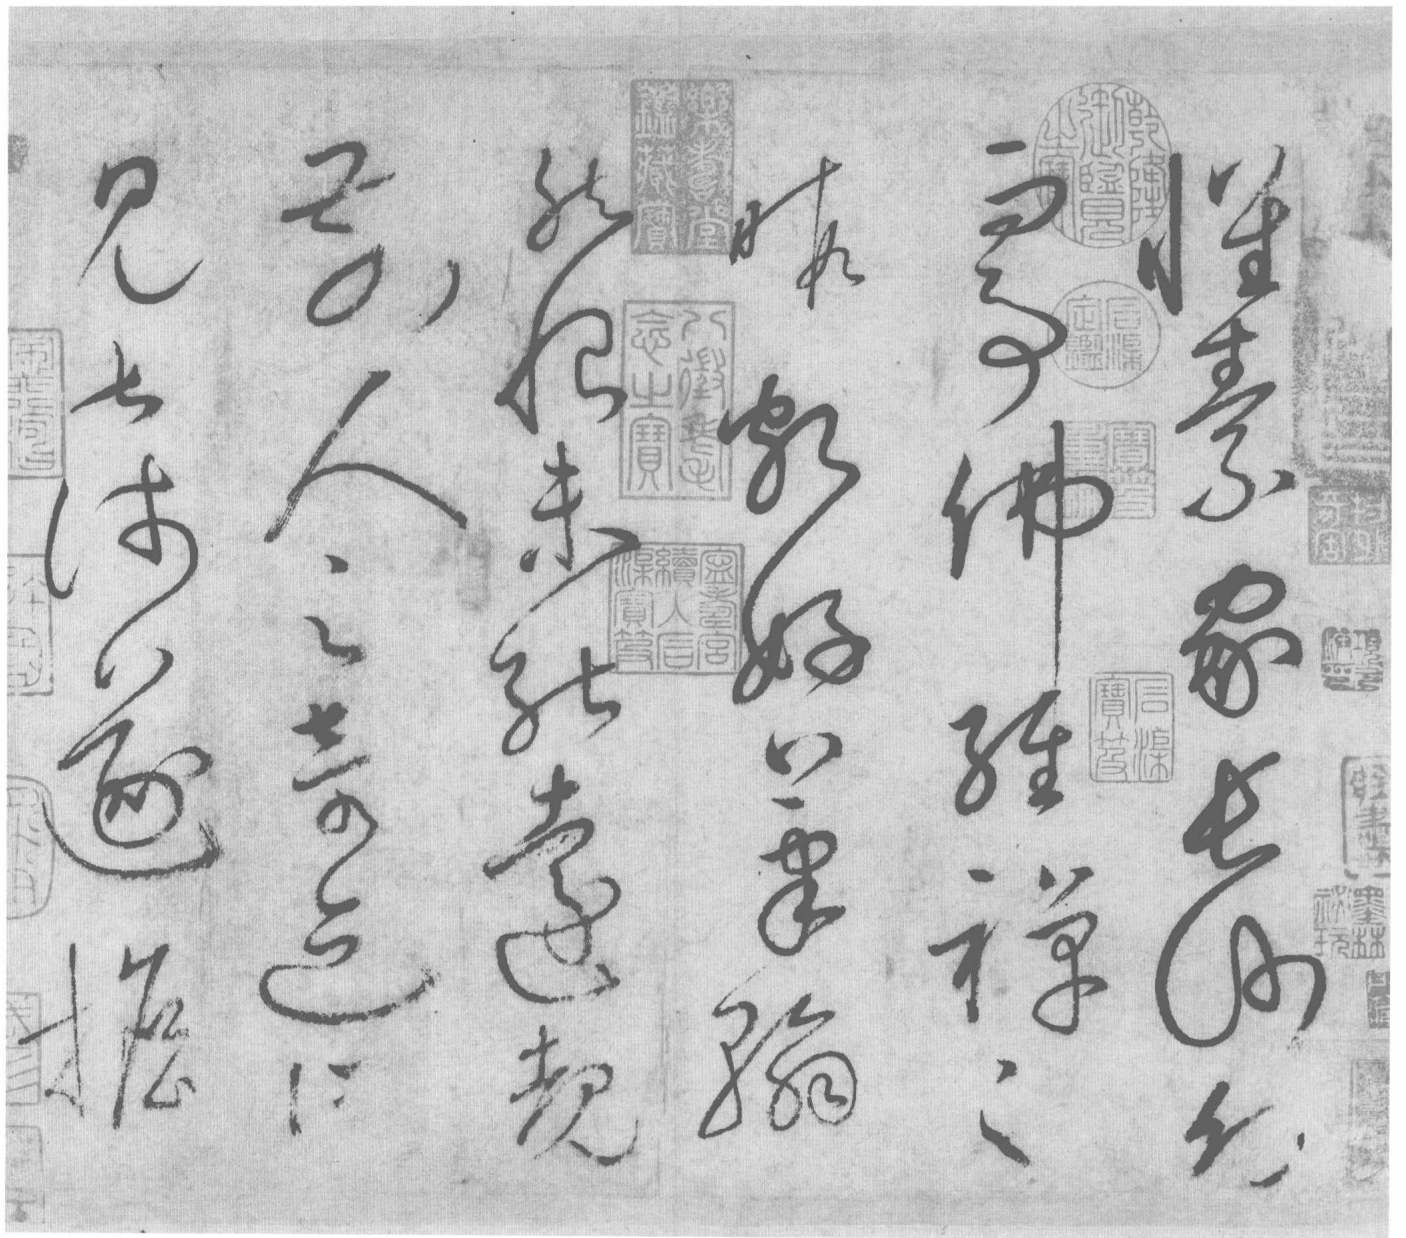 懷素家長沙幼
而事佛經禪之
暇頗好筆翰
然恨未能遠覩
前人之奇迹所
見甚淺遂擔
乾隆御覽之寶
石渠定鑑
寶笈重編
石渠寶笈
樂壽堂鑑藏寶
八徵耄念之寶
寧壽宮續入石渠寶笈
墨林祕玩